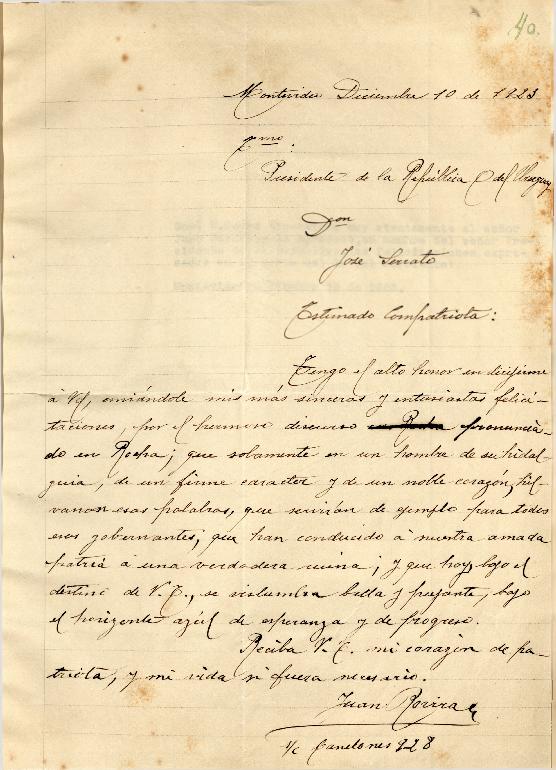 40.
Montevideo Diciembre 10 de 1923
Exmo:
Presidente de la República O del Uruguay
Don
José Serrato
Estimado Compatriota:
Tengo el alto honor en dirijirme
á Vd, enviándole mis más sinceras y entusiastas felici-
taciones, por el hermoso discurso en Rocha pronuncia-
do en Rocha; que solamente en un hombre de su hidal-
guia, de un firme caracter y de un noble corazón, hil-
vanan esas palabras, que servirán de ejemplo para todos
esos gobernantes, que han conducido á nuestra amada
patria á una verdadera ruina; y que hoy bajo el
destino de V. E., se vislumbra bella y pujante, bajo
el horizonte azúl de esperanza y de progreso.
Reciba V. E. mi corazón de pa-
triota, y mi vida si fuera necesario.
Juan Rovira
s/c Canelones 928